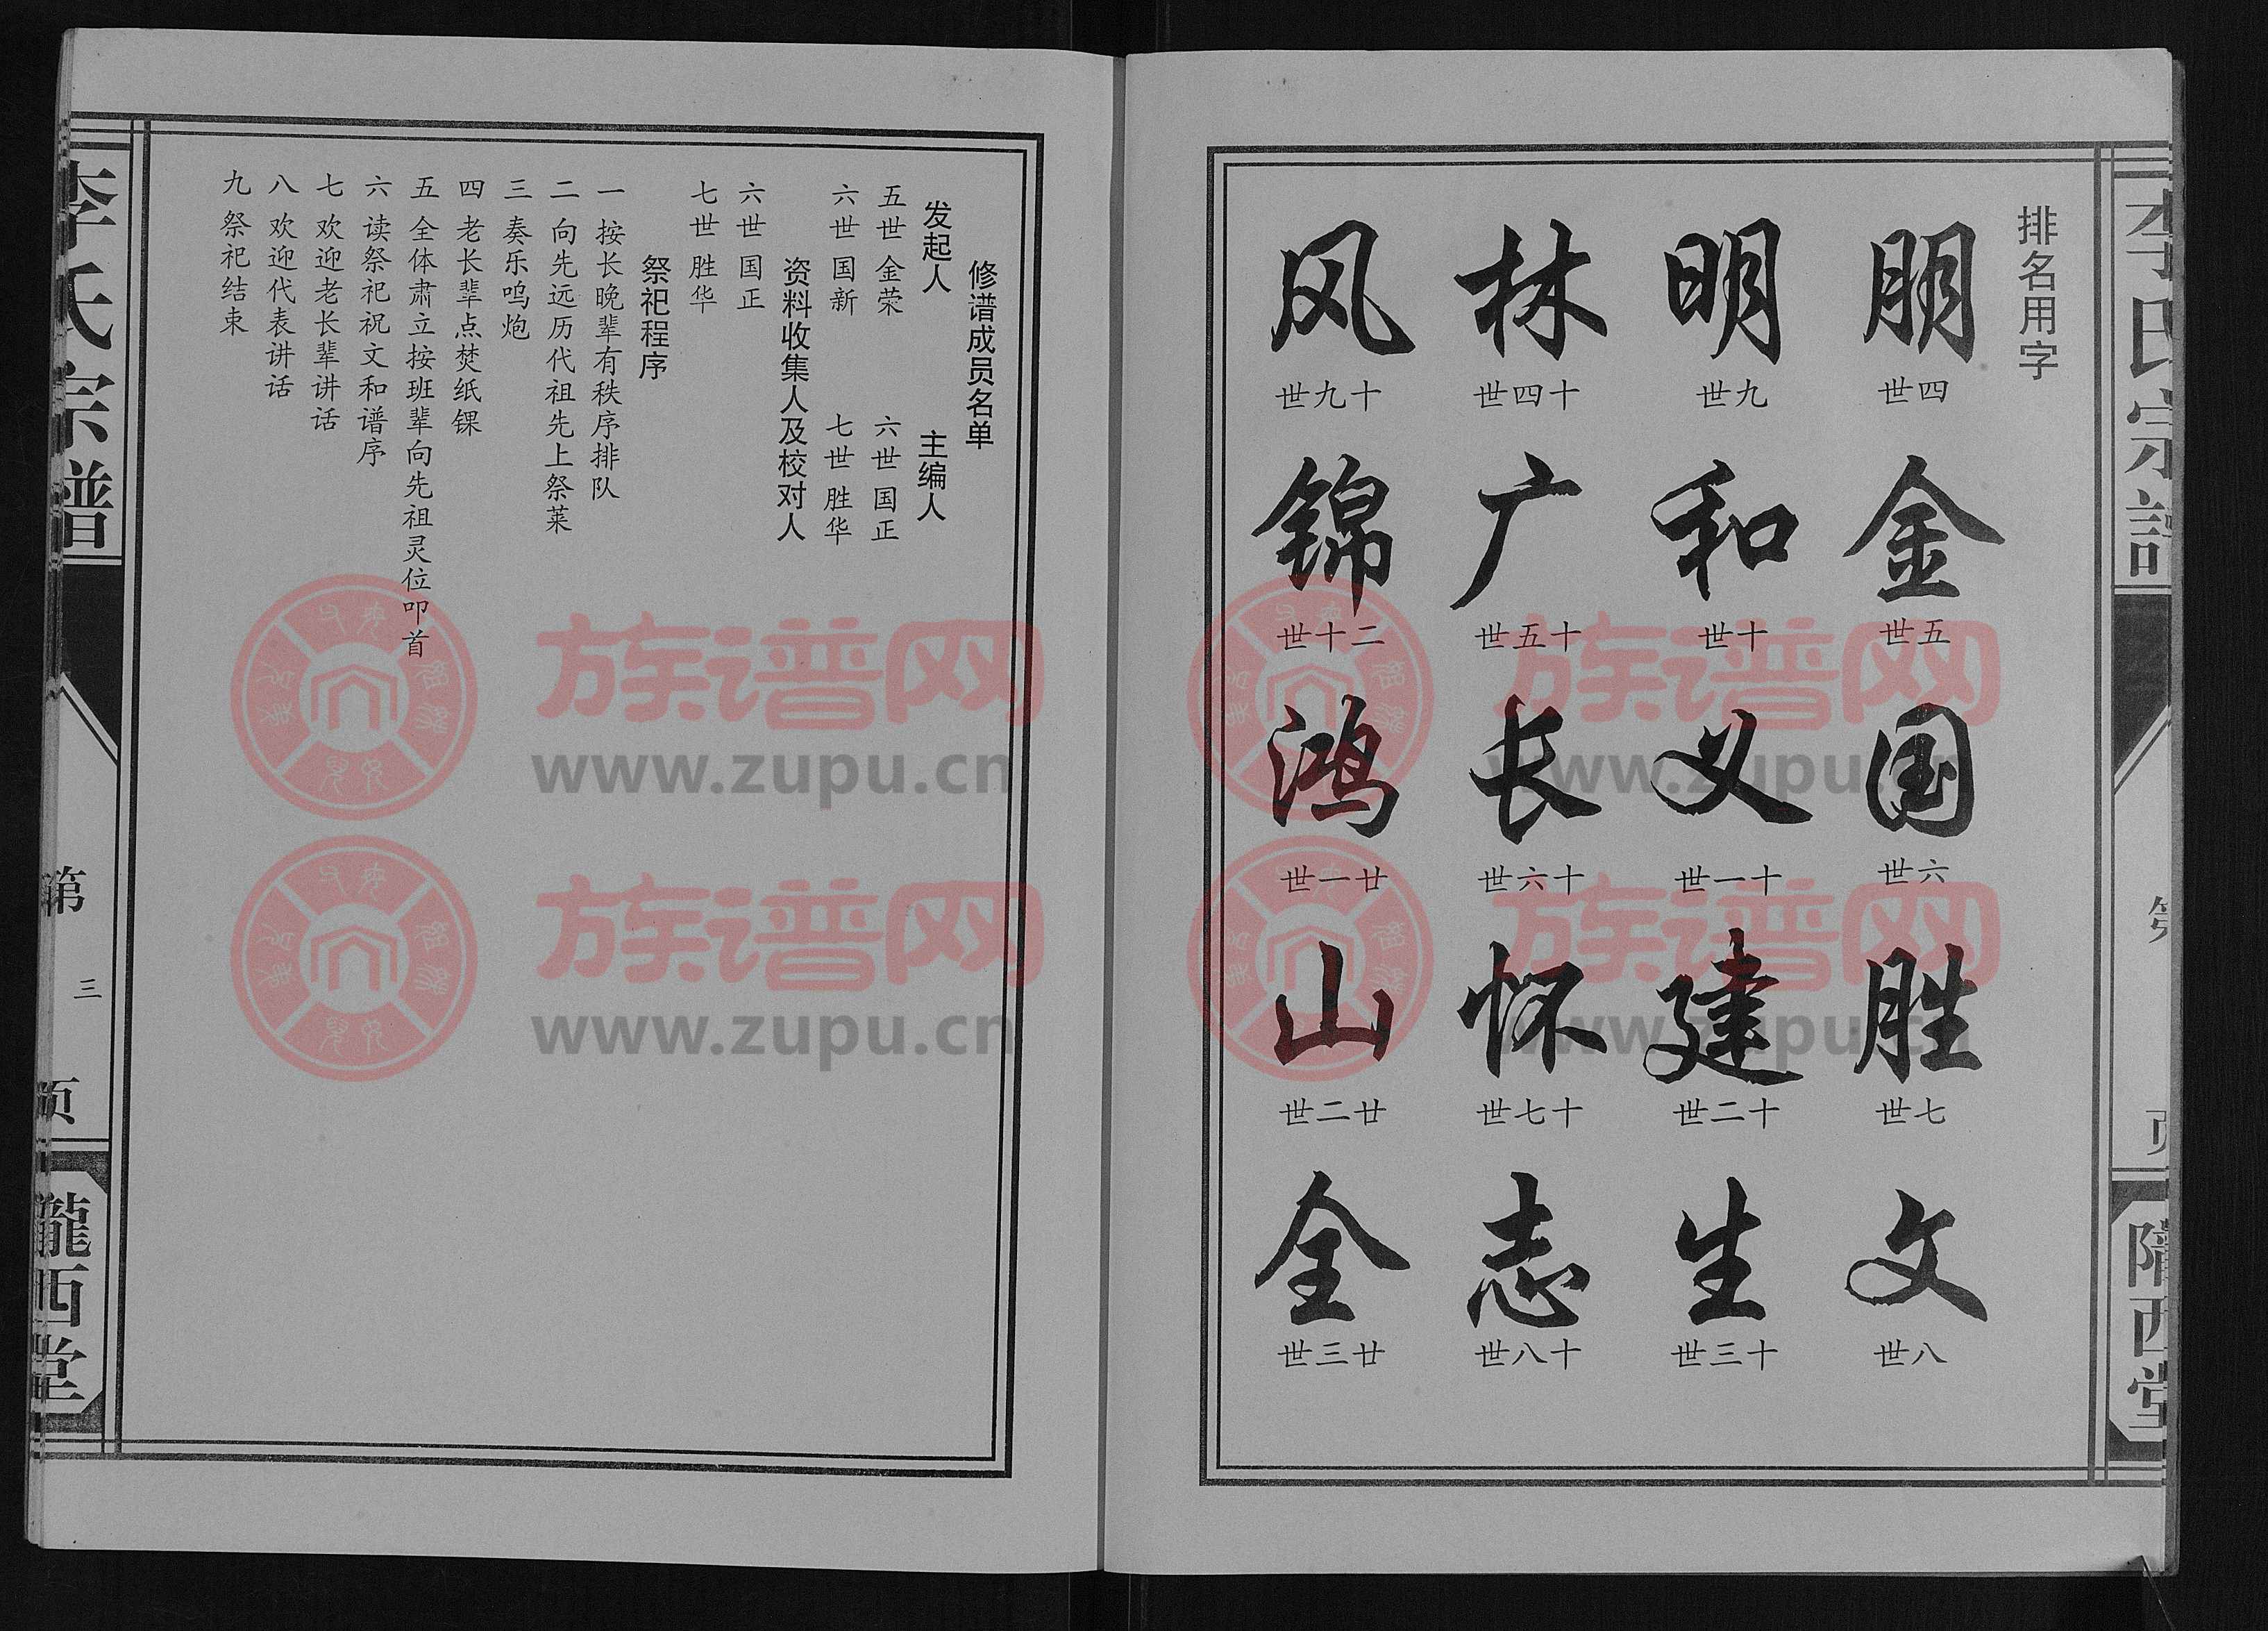 李氏宗譜
第
页
隴西堂
排名用字
朋 金 国 胜 文
四世 五世 六世 七世 八世
明 和 义 建 生
九世 十世 十一世 十二世 十三世
林 广 长 怀 志
十四世 十五世 十六世 十七世 十八世
风 锦 鸿 山 全
十九世 二十世 廿一世 廿二世 廿三世
修谱成员名单
发起人 主编人
五世 金荣 六世 国正
六世 国新 七世 胜华
资料收集人及校对人
六世 国正
七世 胜华
祭祀程序
一 按长晚辈有秩序排队
二 向先远历代祖先上祭菜
三 奏乐鸣炮
四 老长辈点焚纸锞
五 全体肃立按班辈向先祖灵位叩首
六 读祭祀祝文和谱序
七 欢迎老长辈讲话
八 欢迎代表讲话
九 祭祀结束
李氏宗譜
第 三 页
隴西堂
族谱网
www.zupu.cn
族谱网
www.zupu.cn
族谱网
www.zupu.cn
族谱网
www.zupu.cn